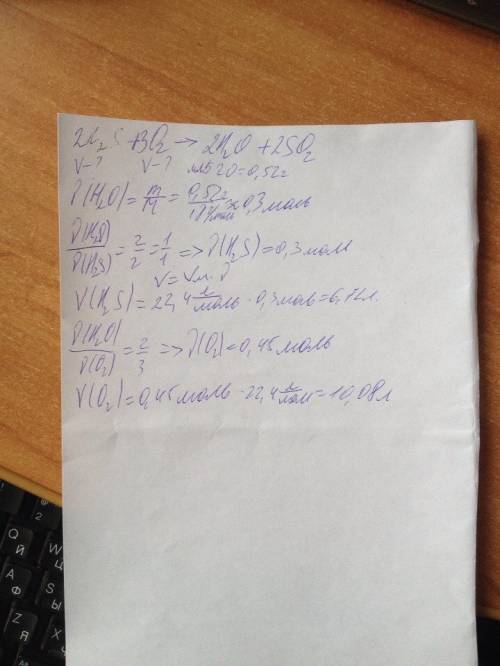 2H₂S + 3O₂ → 2H₂O + 2SO₂
V-? V-? =0,52г
ν(H₂O) = m/M = 0,52г/18г/моль ≈ 0,3 моль
ν(H₂O)/ν(H₂S) = 2/2 = 1/1 => ν(H₂S) = 0,3 моль
V = Vм · ν
V(H₂S) = 22,4 л/моль · 0,3 моль = 6,72л.
ν(H₂O)/ν(O₂) = 2/3 => ν(O₂) = 0,45 моль
V(O₂) = 0,45 моль · 22,4 л/моль = 10,08 л
2
Q
Й
Ц
A
Ф
S
Ы
Z
Я
X